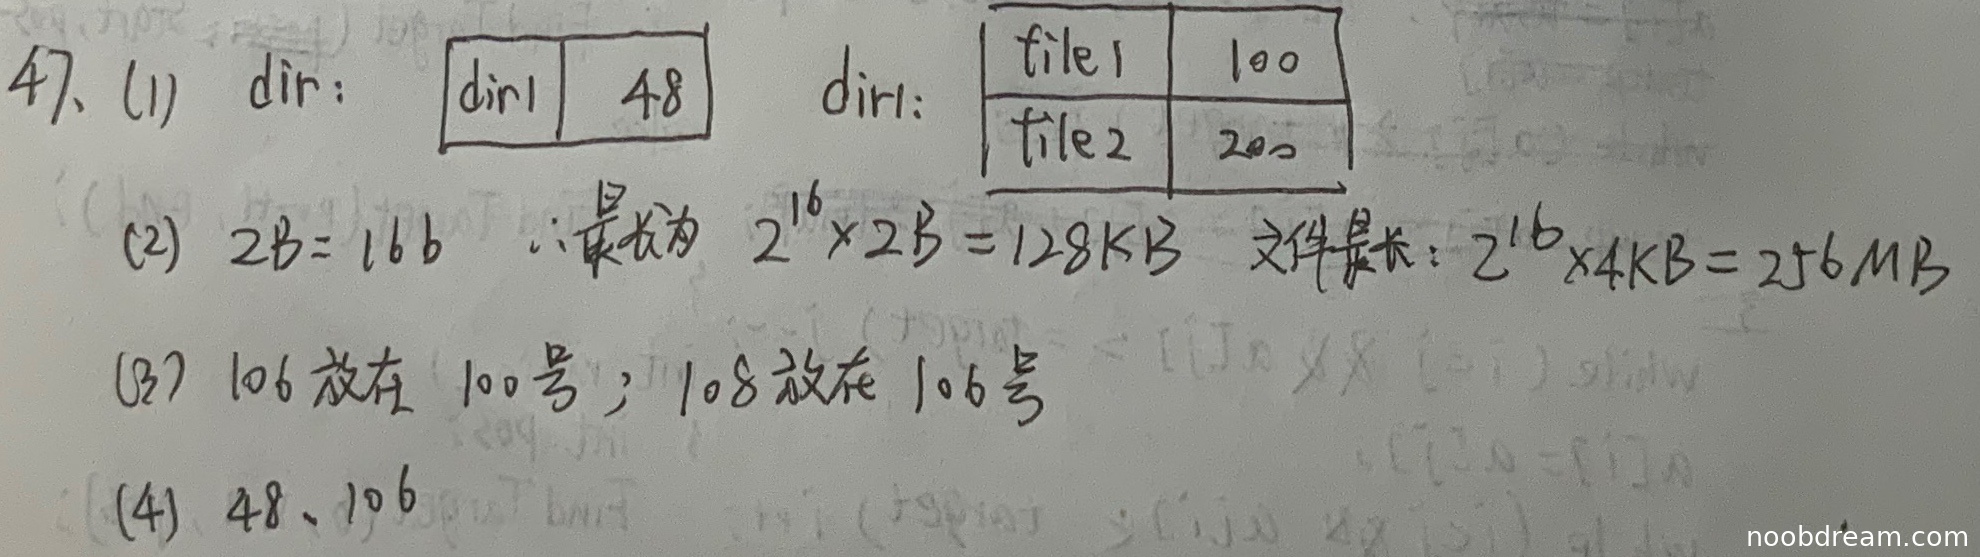 47、(1) dir: dir1 48 dir1: file1 100
file2 200
(2) 2B=16b ∴最长为 2^16×2B=128KB 文件最长: 2^16×4KB=256MB
(3) 106放在 100号; 108放在 106号
(4) 48、106
noobdream.com